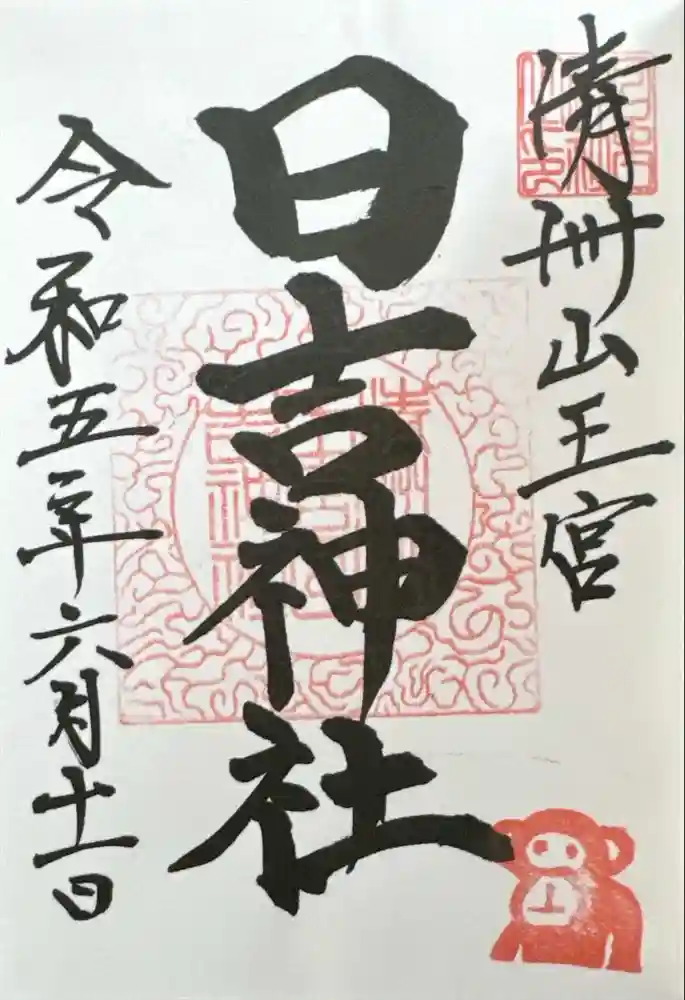 清州山王宮
日吉神社
令和五年六月十一日